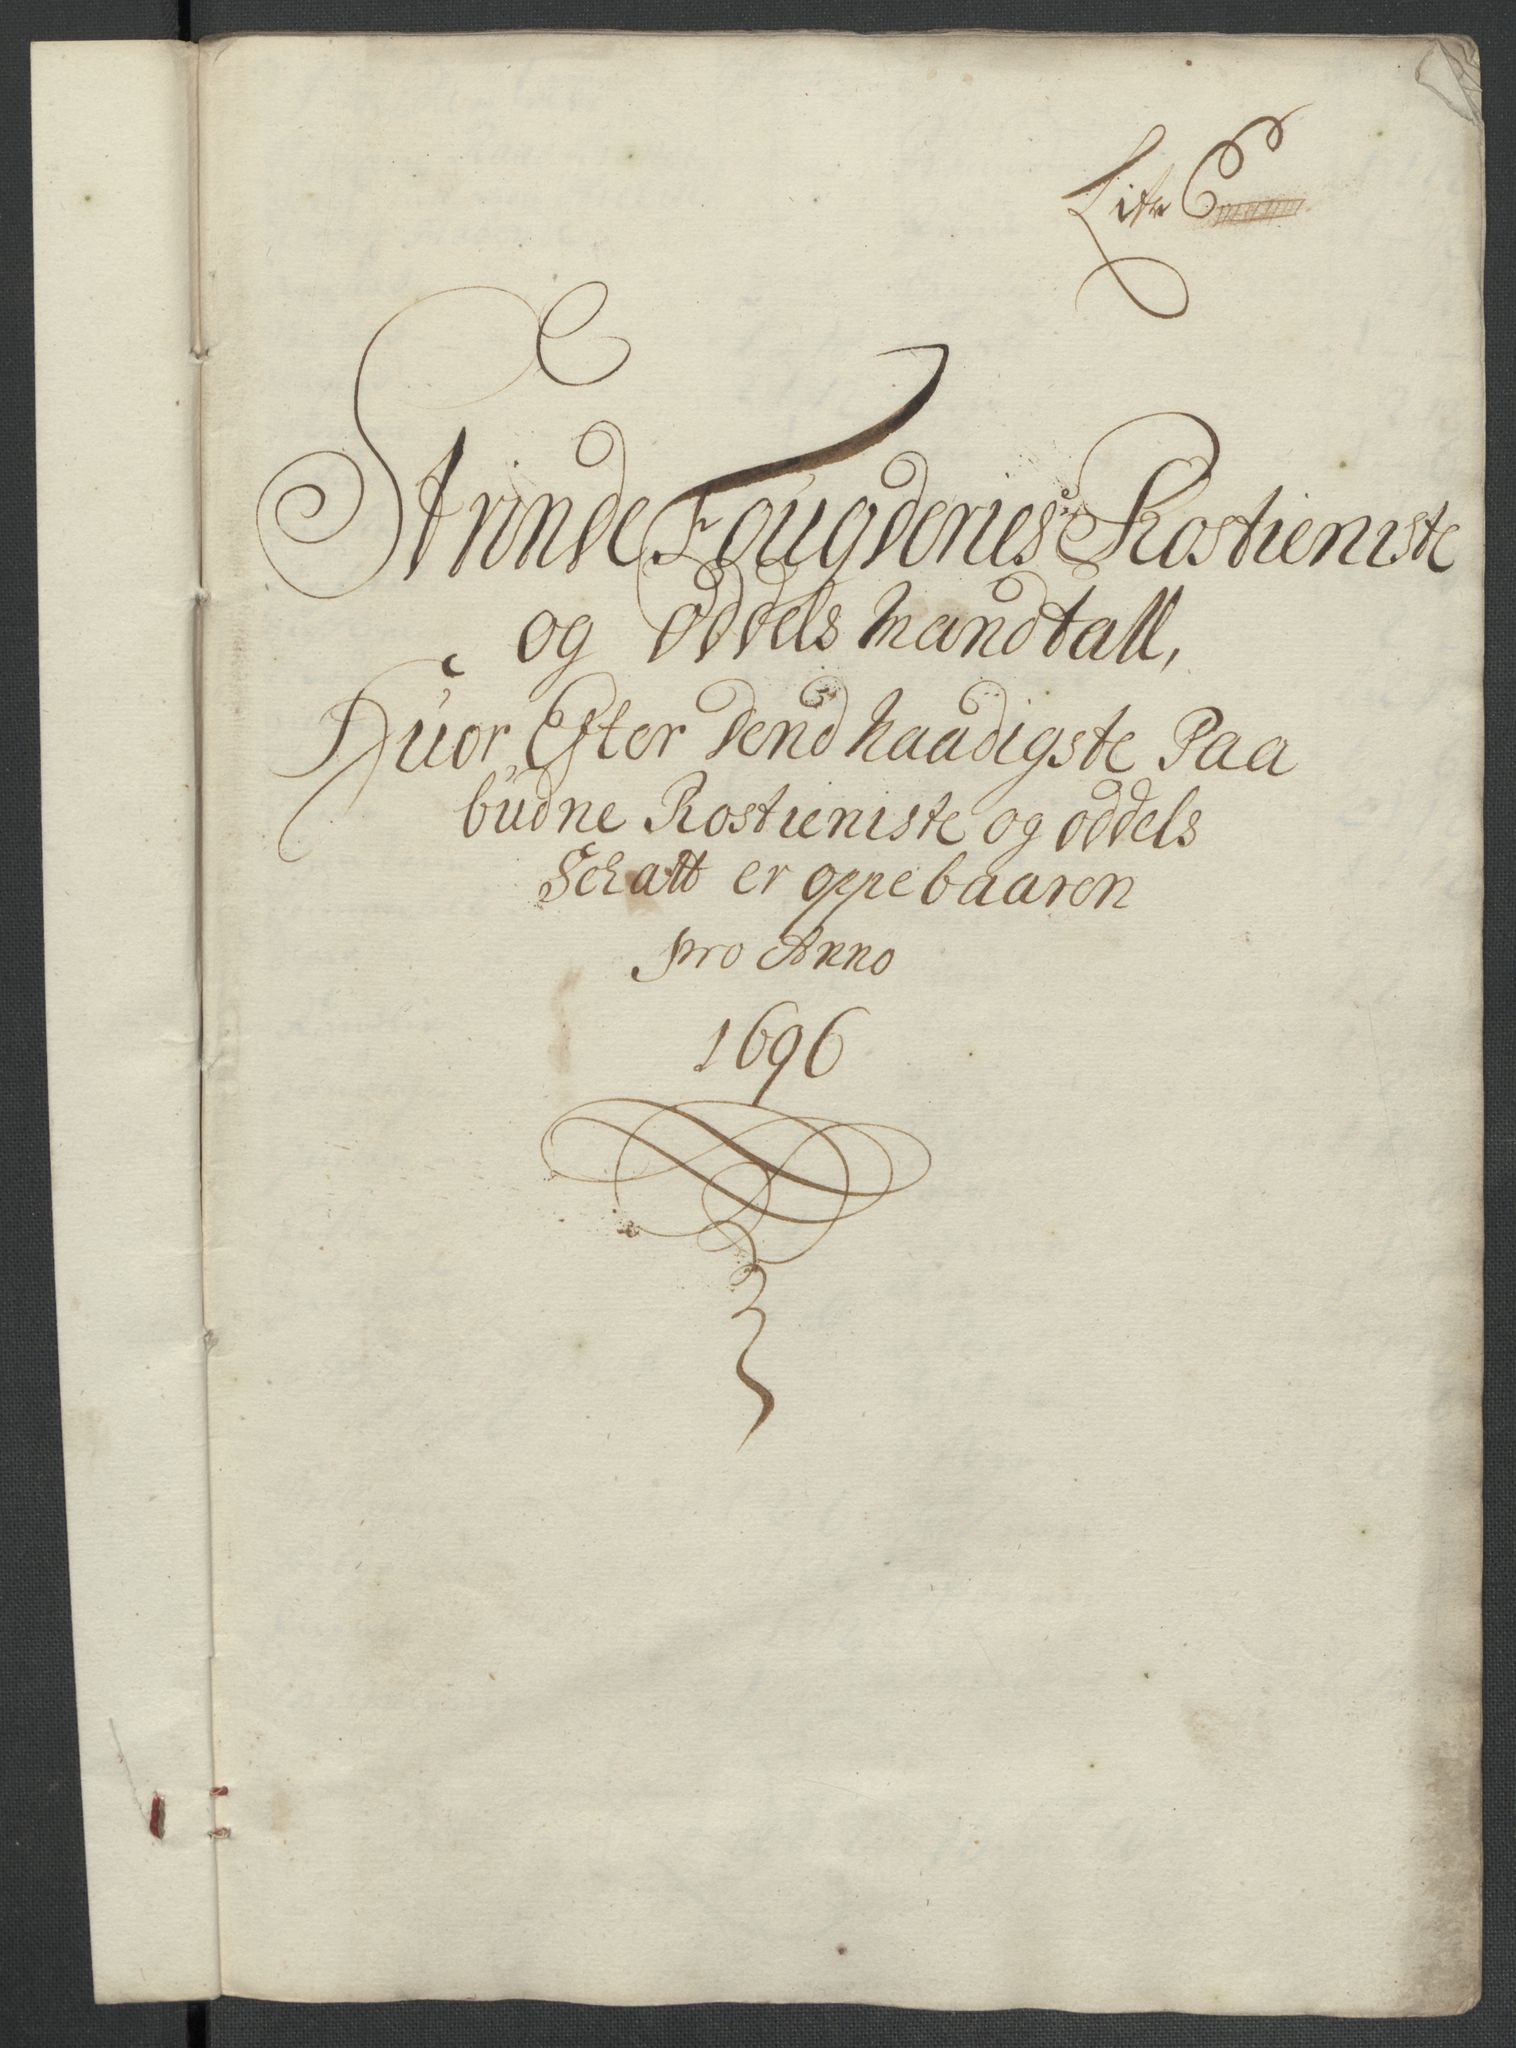 Litr C
Strinde Fougderies Rostieniste
og oddels mandtall,
Huor Efter dend naadigste Paa
budne Rostieniste og oddels
Schatt er oppebaaren
pro Anno
1696